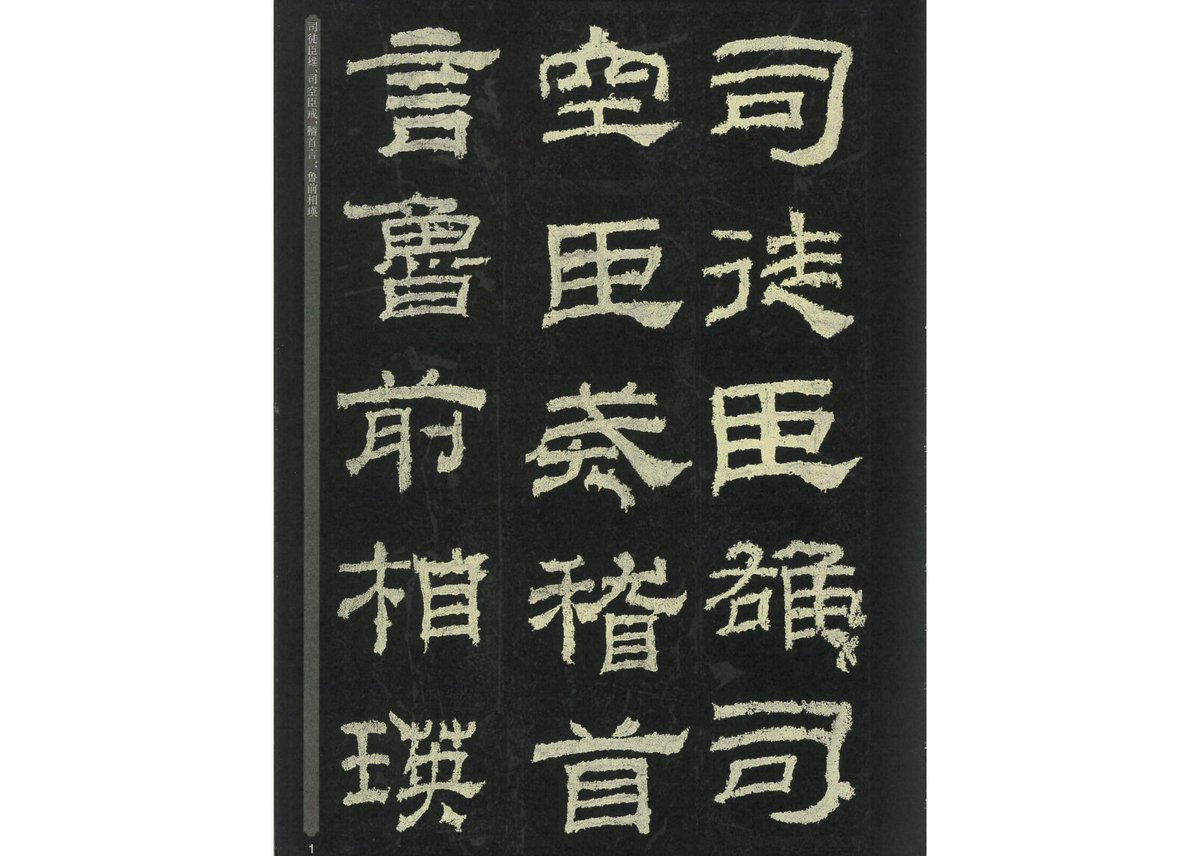 司徒臣雄司
空臣戒稽首
言魯前相瑛
司徒臣雄、司空臣戒、稽首言：鲁前相瑛
1